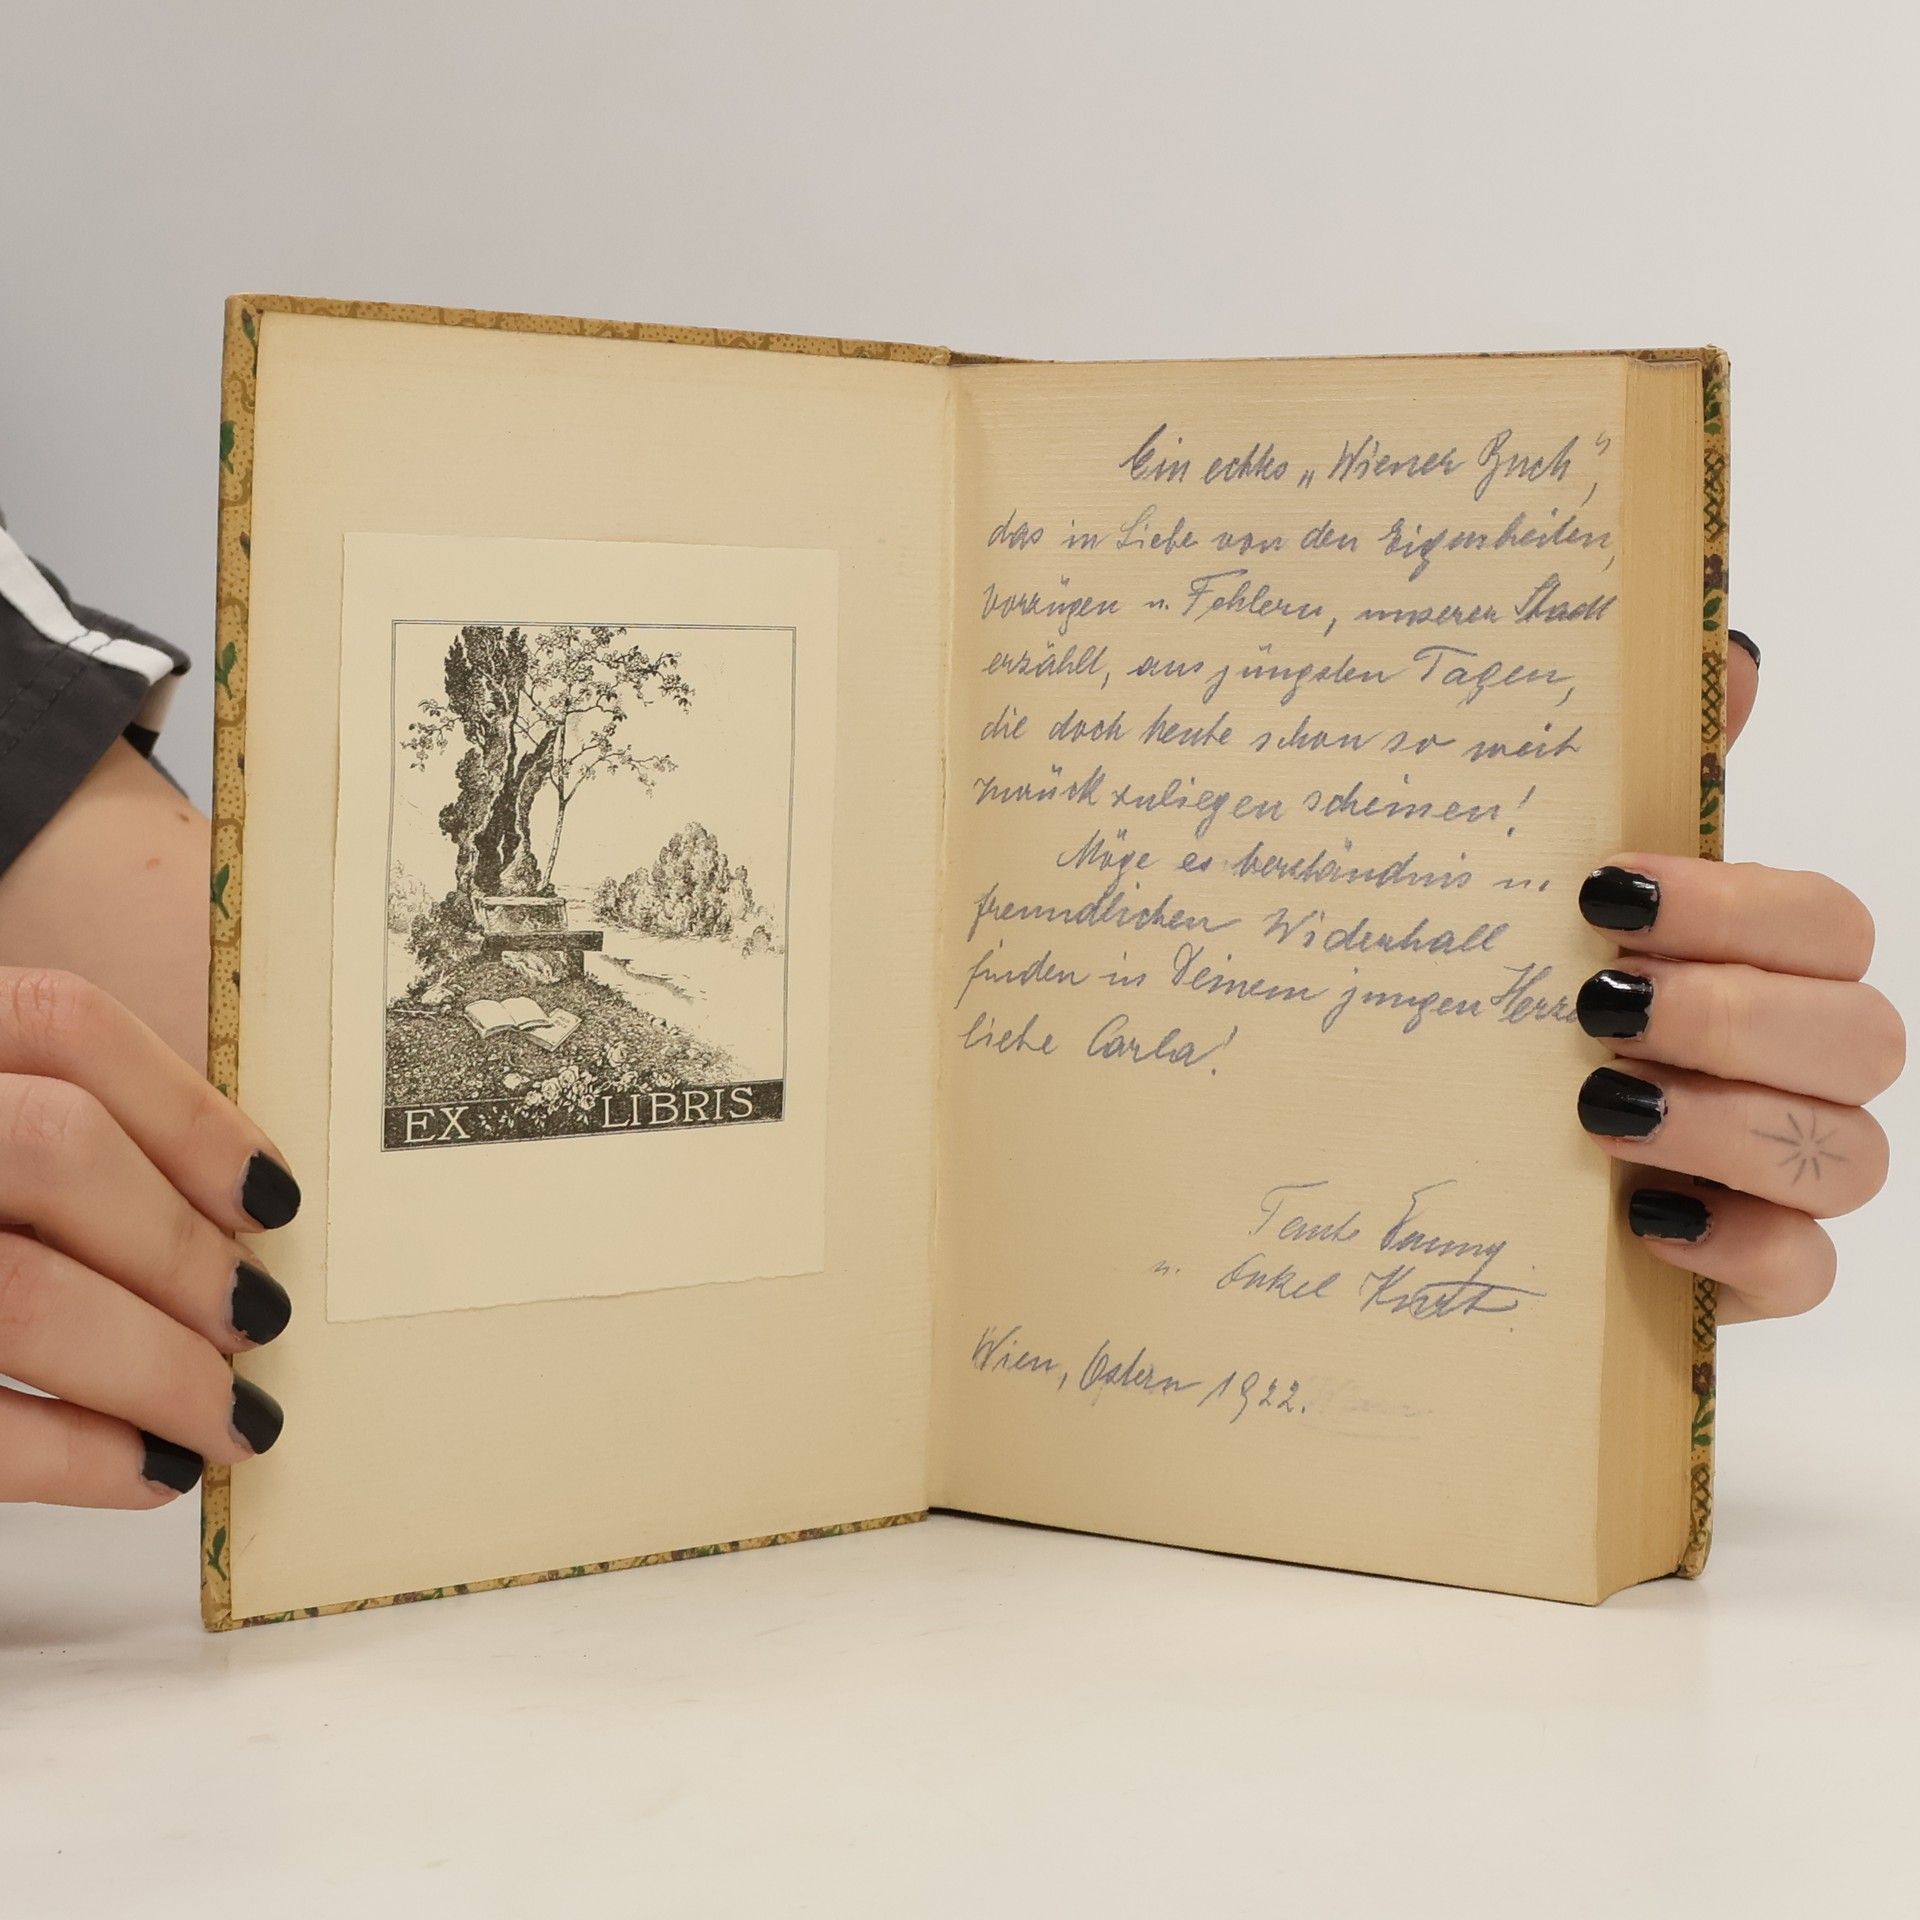 EX LIBRIS
Ein echtes „Wiener Buch“,
das in Liebe von den Eigenheiten,
Vorzügen u. Fehlern, unserer Stadt
erzählt, aus jüngsten Tagen,
die doch heute schon so weit
zurück zuliegen scheinen!
Möge es Verständnis u.
freundlichen Widerhall
finden in Deinem jungen
liebe Carla!
Tante
u. Onkel Kurt
Wien, Ostern 1922.